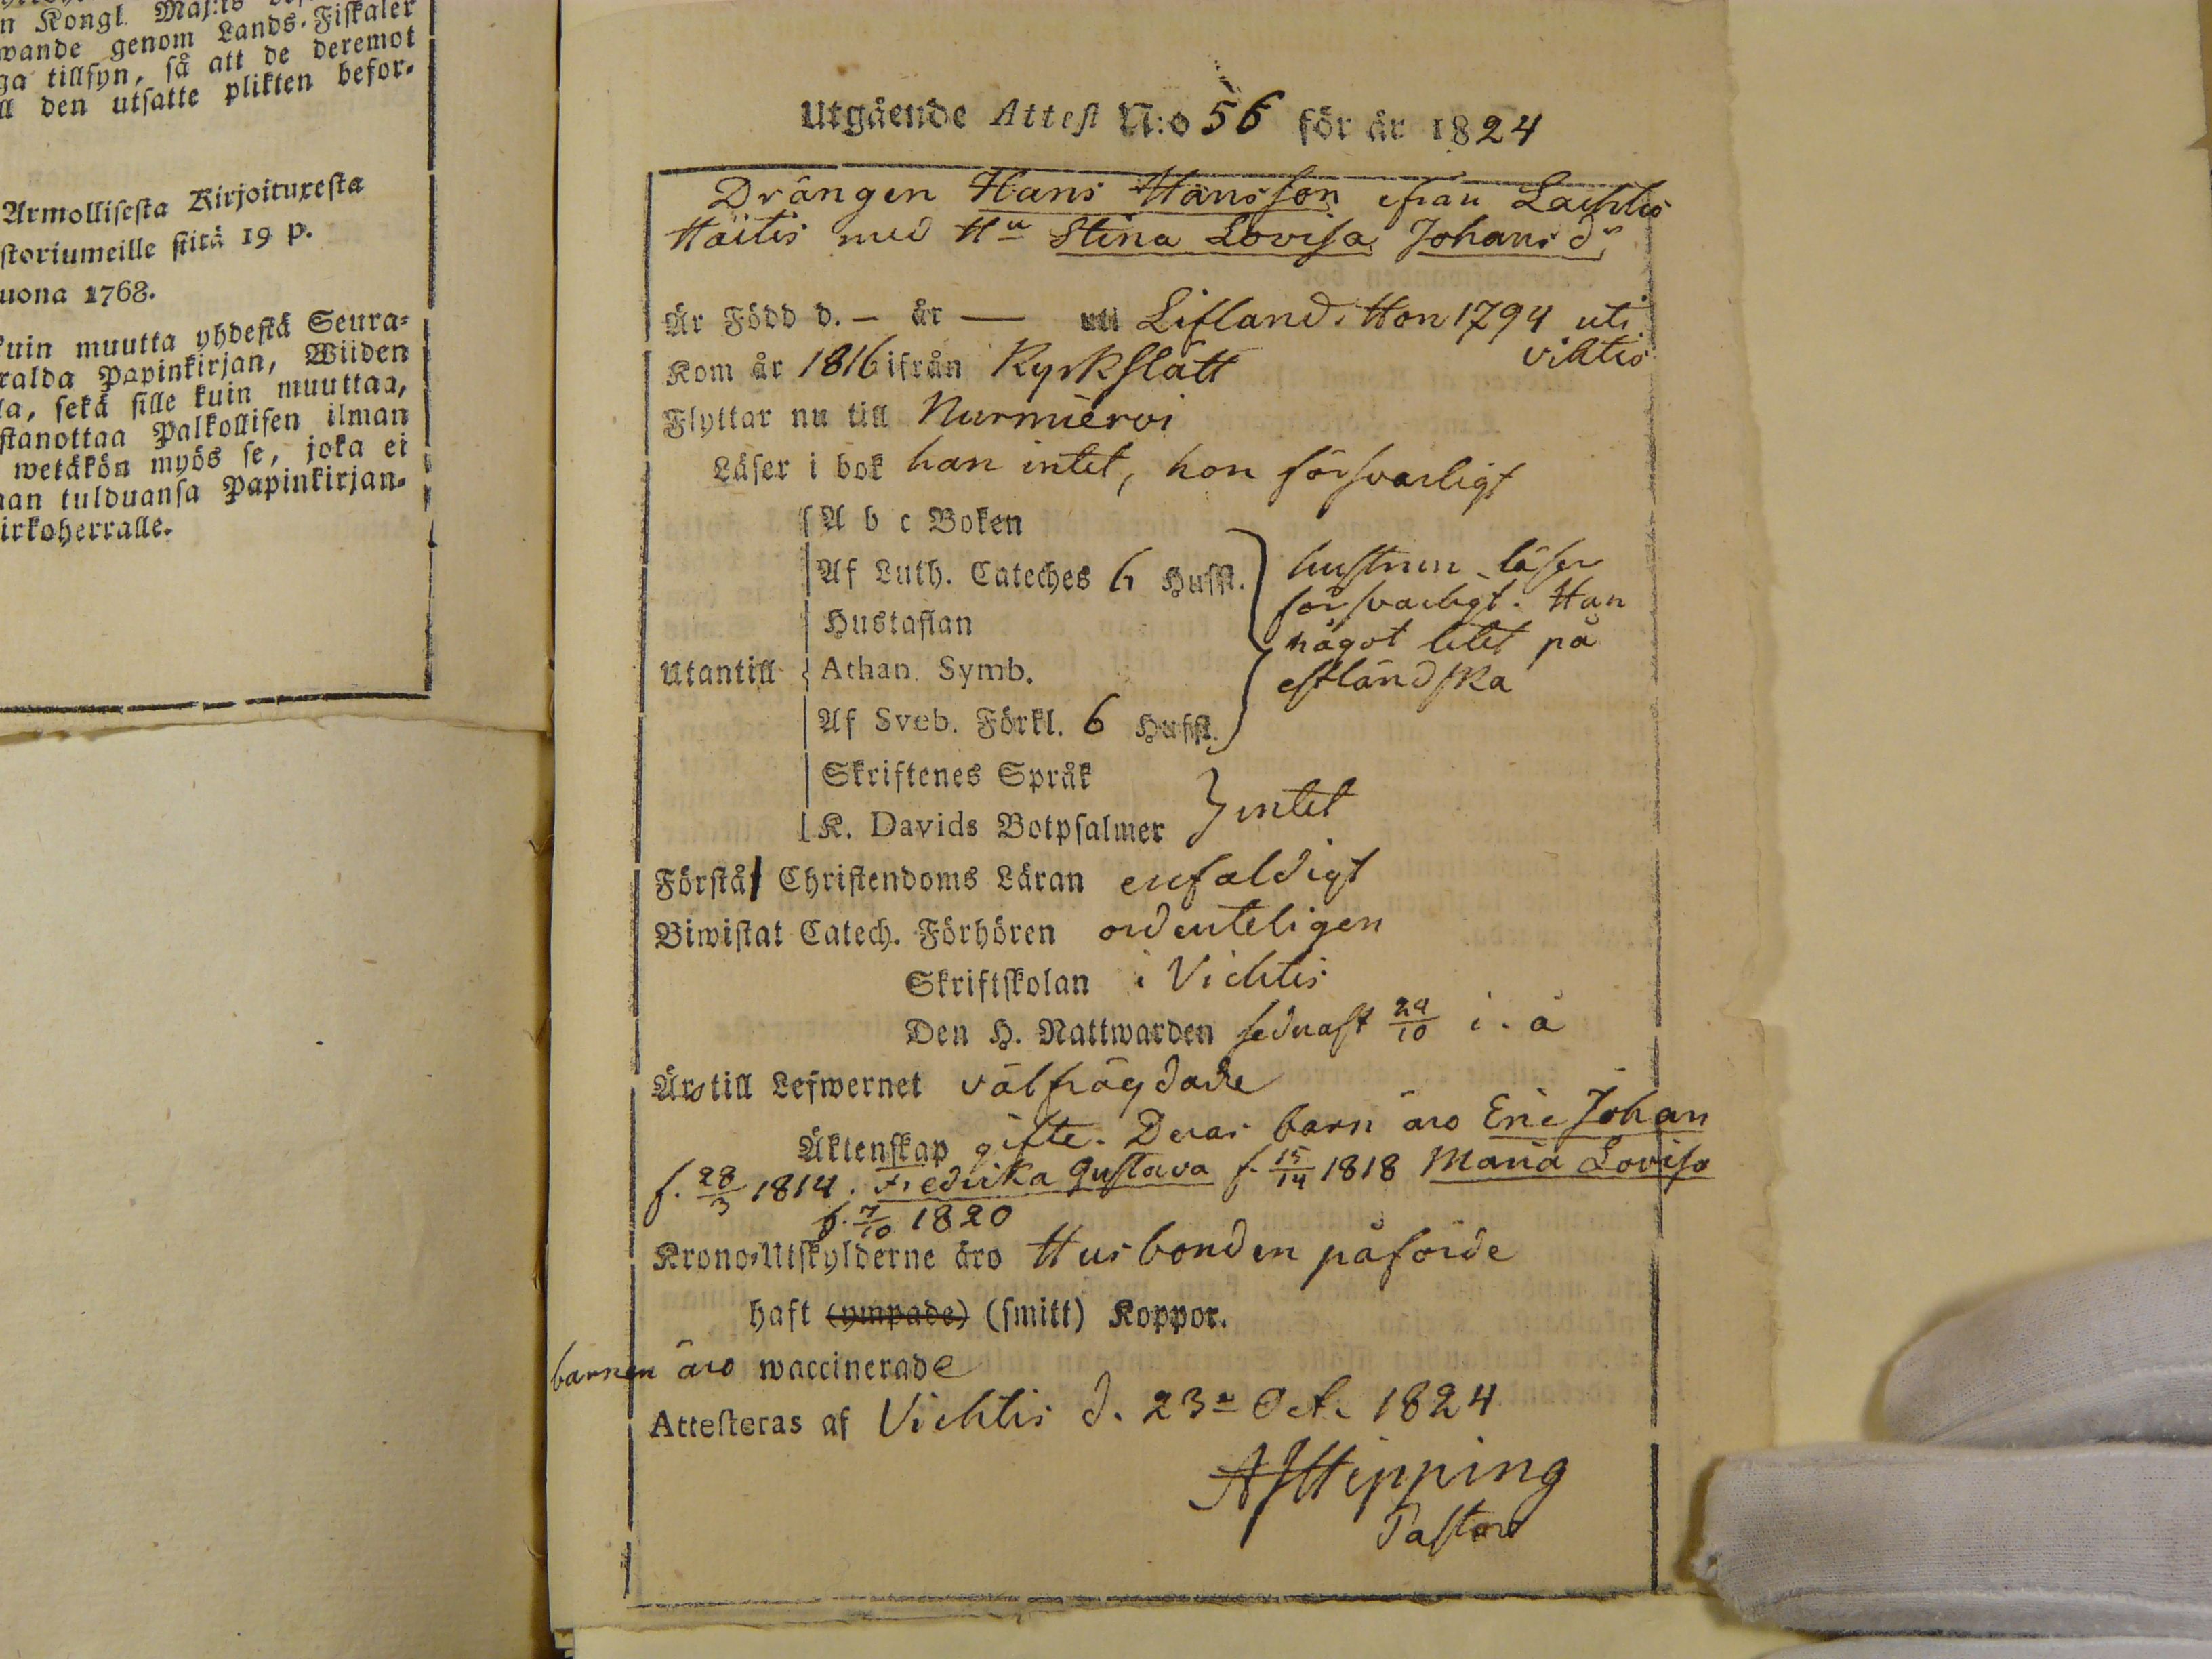 n Kongl. Maj:ts
wande genom Lands-Fiskaler
ga tillsyn, så att de deremot
ll den utsatte plikten befor-
Armollisesta Kirjoituxesta
storiumeille siitä 19 p.
uona 1768.
kuin muutta yhdestä Seura-
ralda Papinkirjan, Wiiden
la, sekä sille kuin muuttaa,
stanottaa Palkollisen ilman
wetäkön myös se, joka ei
nan tulduansa Papinkirjan-
irkoherralle.
Utgående Attest N:o 56 för år 1824
Drängen Hans Hansson ifrån Lachtis
Häitis med Hu Stina Lovisa Johansdr
Är Född d. — år — uti Lifland. Hon 1794 uti
Vihtis
Kom år 1816 ifrån Kyrkslätt
Flyttar nu till Nurmiervi
Läser i bok han intet, hon försvarligt
A b c Boken
Af Luth. Cateches 6 Hufst.
Hustaflan
Utantill Athan. Symb.
Af Sveb. Förkl. 6 Hufst.
hustrun läser
försvarligt. Han
något litet på
estländska
Skriftenes Språk
K. Davids Botpsalmer } intet
Förstå Christendoms Läran enfaldigt
Biwistat Catech. Förhören ordenteligen
Skriftskolan i Vichtis
Den H. Nattwarden sednast 24/10 i. å
Äro till Lefwernet välfrägdade
Äktenskap gifte. Deras barn äro Eric Johan
f. 28/3 1814. Fredrika Gustava f. 15/14 1818 Maria Lovisa
f. 7/10 1820
Krono-Utskylderne äro Husbonden påförde
haft (ympade) (smitt) Koppor.
barnen äro waccinerade
Attesteras af Vichtis d. 23e Oct. 1824
AJHipping
Pastor